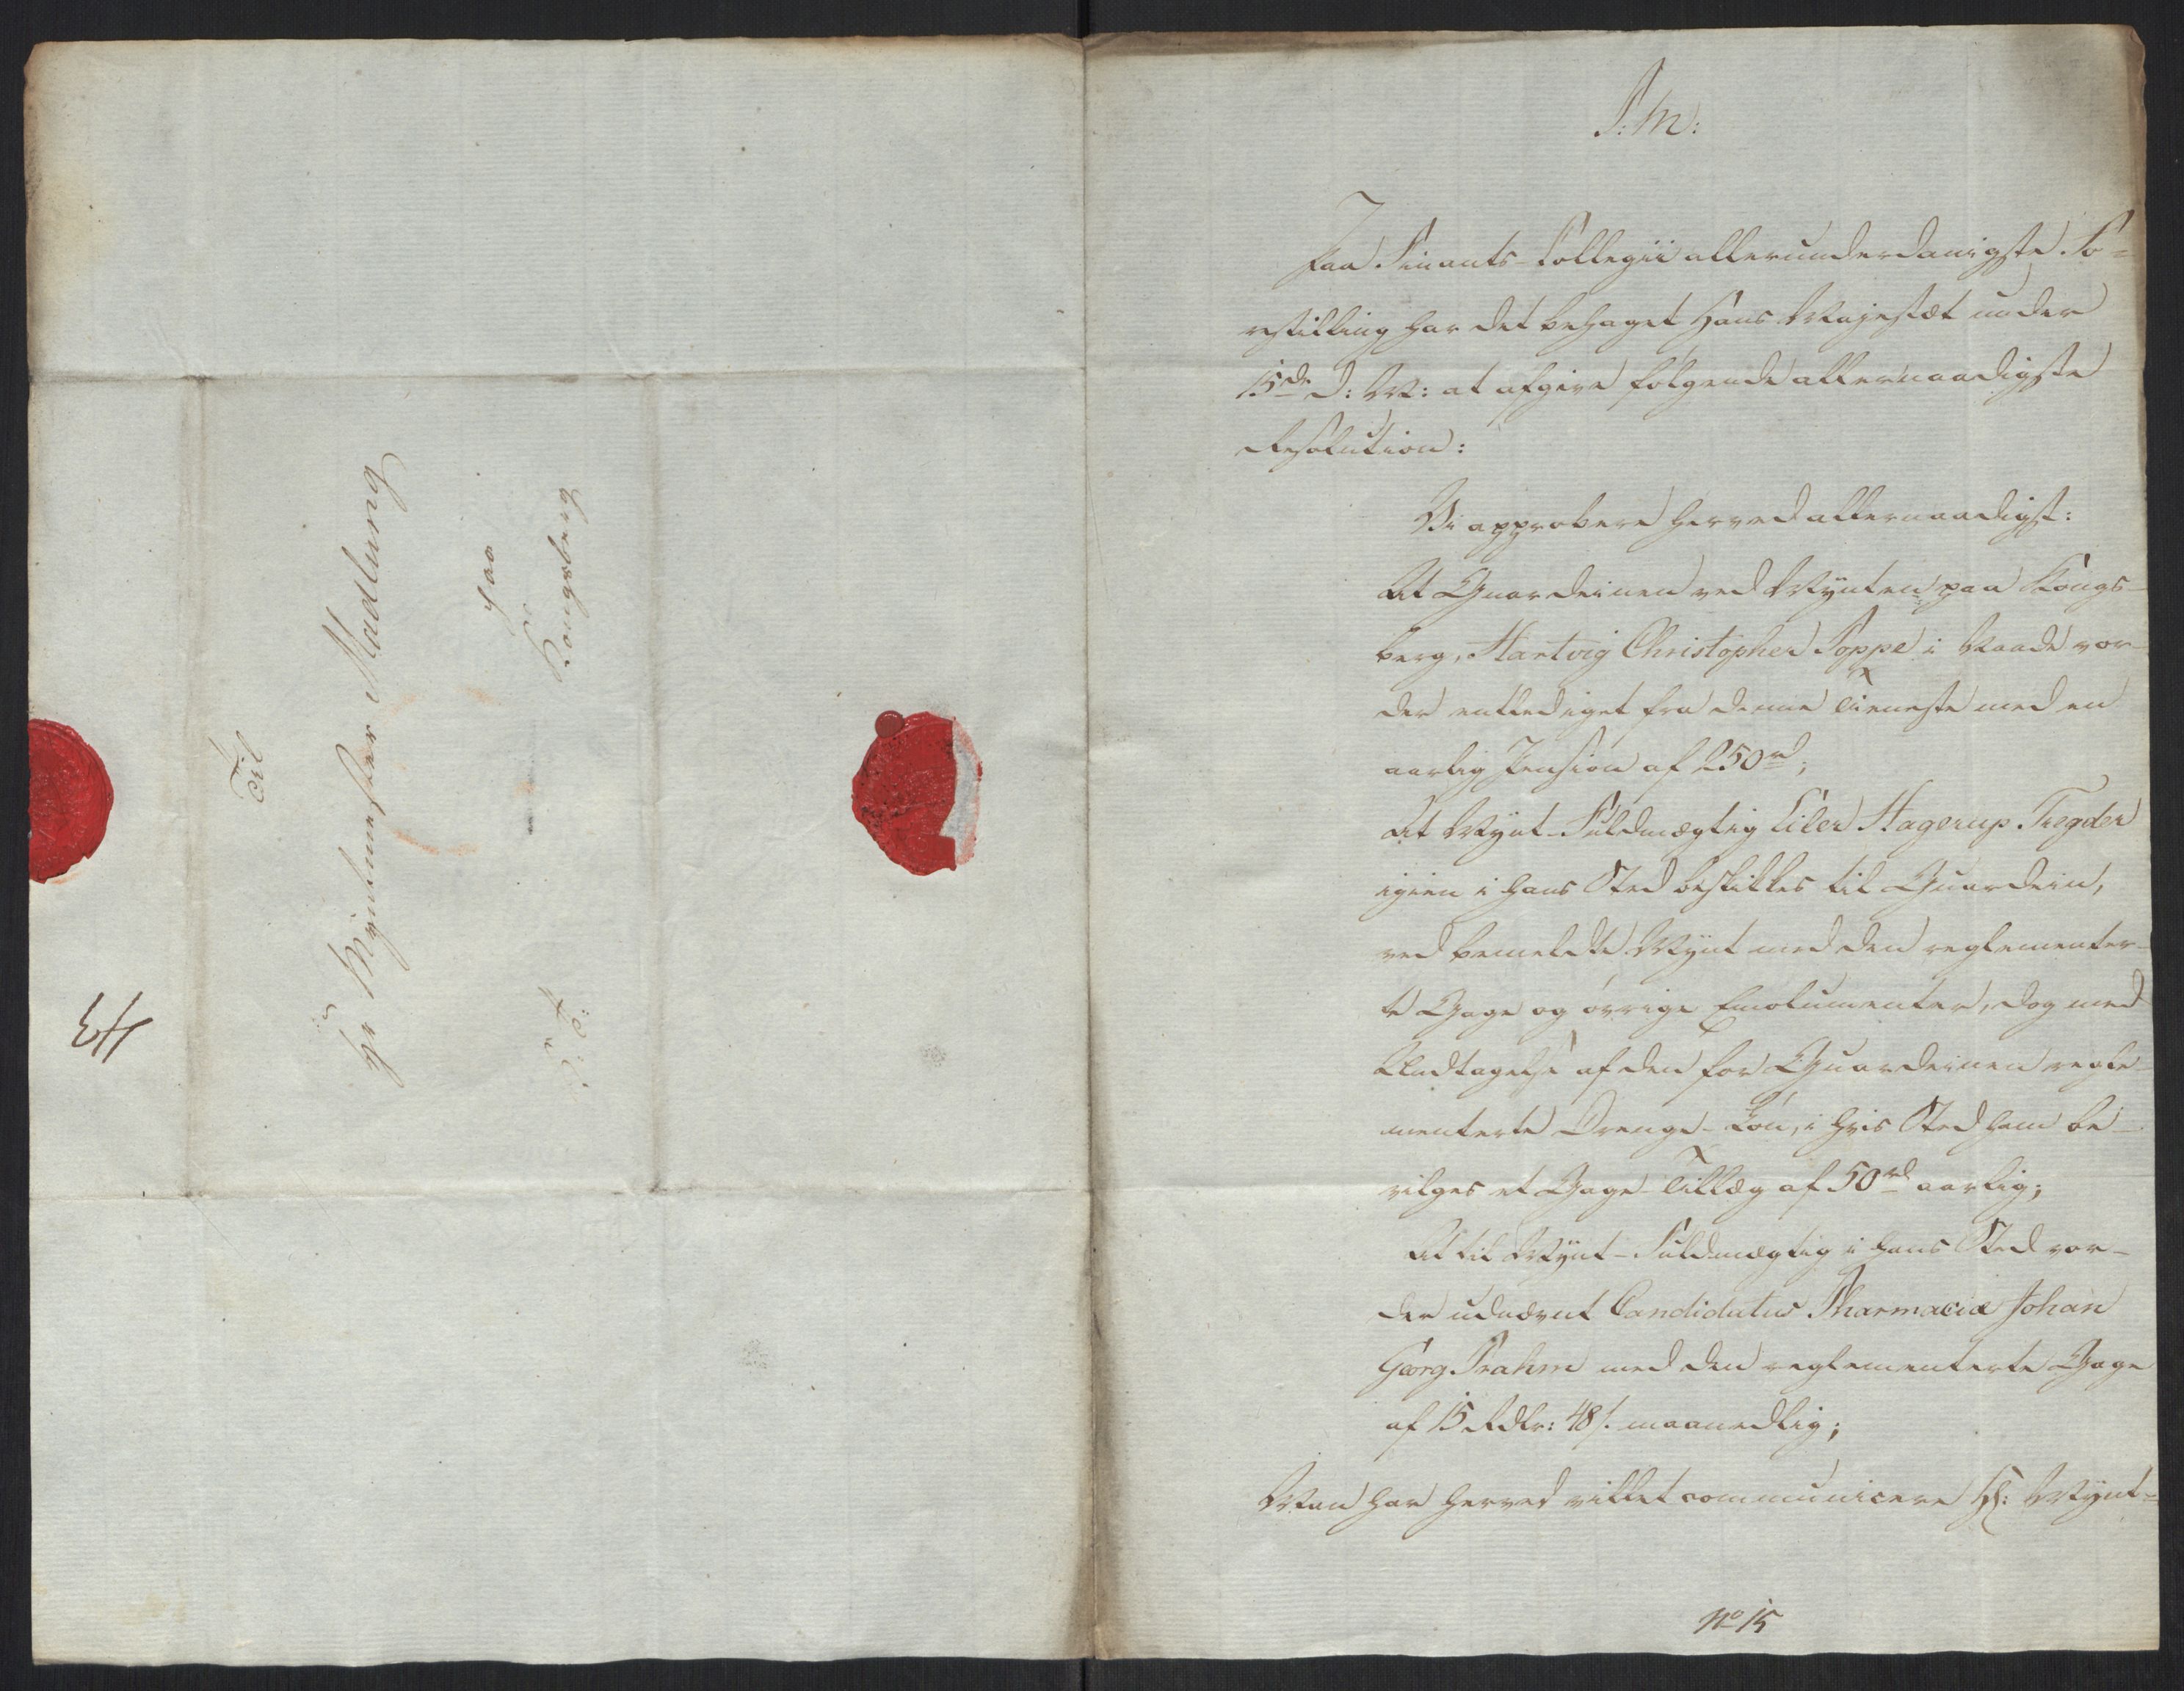 Til
Hr Myntmester Madlung
paa
Kongsberg
K: T:
P: M:
Paa Finants-Collegii allerunderdanigste Fo=
restilling har det behaget Hans Majestæt under
15de d: M: at afgive følgende allernaadigste
Resolution:
Vi approbere herved allernaadigst:
At Guardeinen ved Mynten paa Kongs-
berg, Hartvig Christopher Poppe i Naade vor-
der entlediget fra denne Tieneste med en
aarlig Pension af 250 rd;
At Mynt-Fuldmægtig Eiler Hagerup Tregder
igien i hans Sted beskikkes til Guardein,
ved bemeldte Mynt med den reglementer-
te Gage og øvrige Emolumenter, dog med
Undtagelse af den for Guardeinen regle-
menterte Drenge-Løn, i hvis Sted ham be-
vilges et Gage-Tillæg af 50 rd aarlig;
At til Mynt-Fuldmægtig i hans Sted vor-
der udnævnt Candidatus Pharmaciæ Johan
Georg Prahm med den reglementerte Gage
af 15 Rdlr: 48 s. maanedlig;
Man har herved villet communicere Hr: Mynt=
No 15